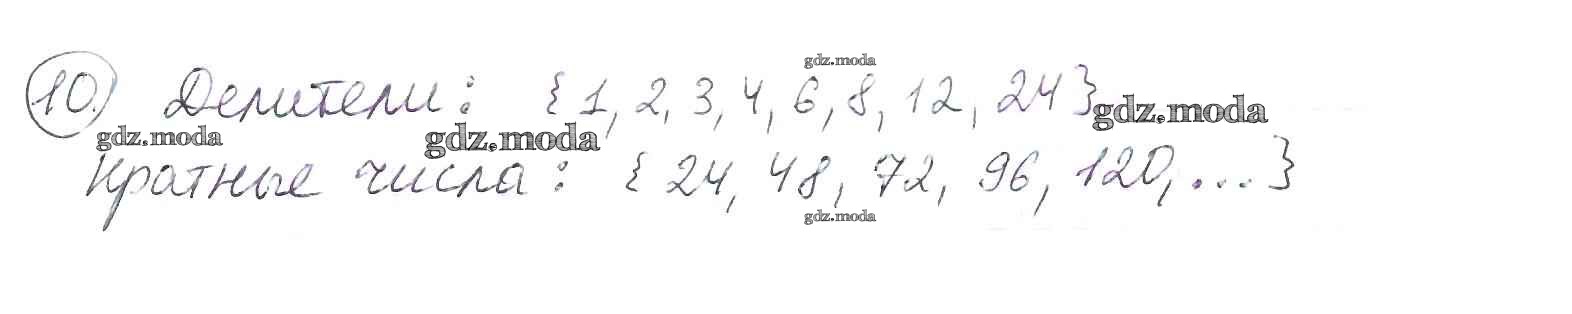 gdz.moda
10. Делители: {1, 2, 3, 4, 6, 8, 12, 24}
gdz.moda
gdz.moda gdz.moda
Кратные числа: {24, 48, 72, 96, 120, ...}
gdz.moda